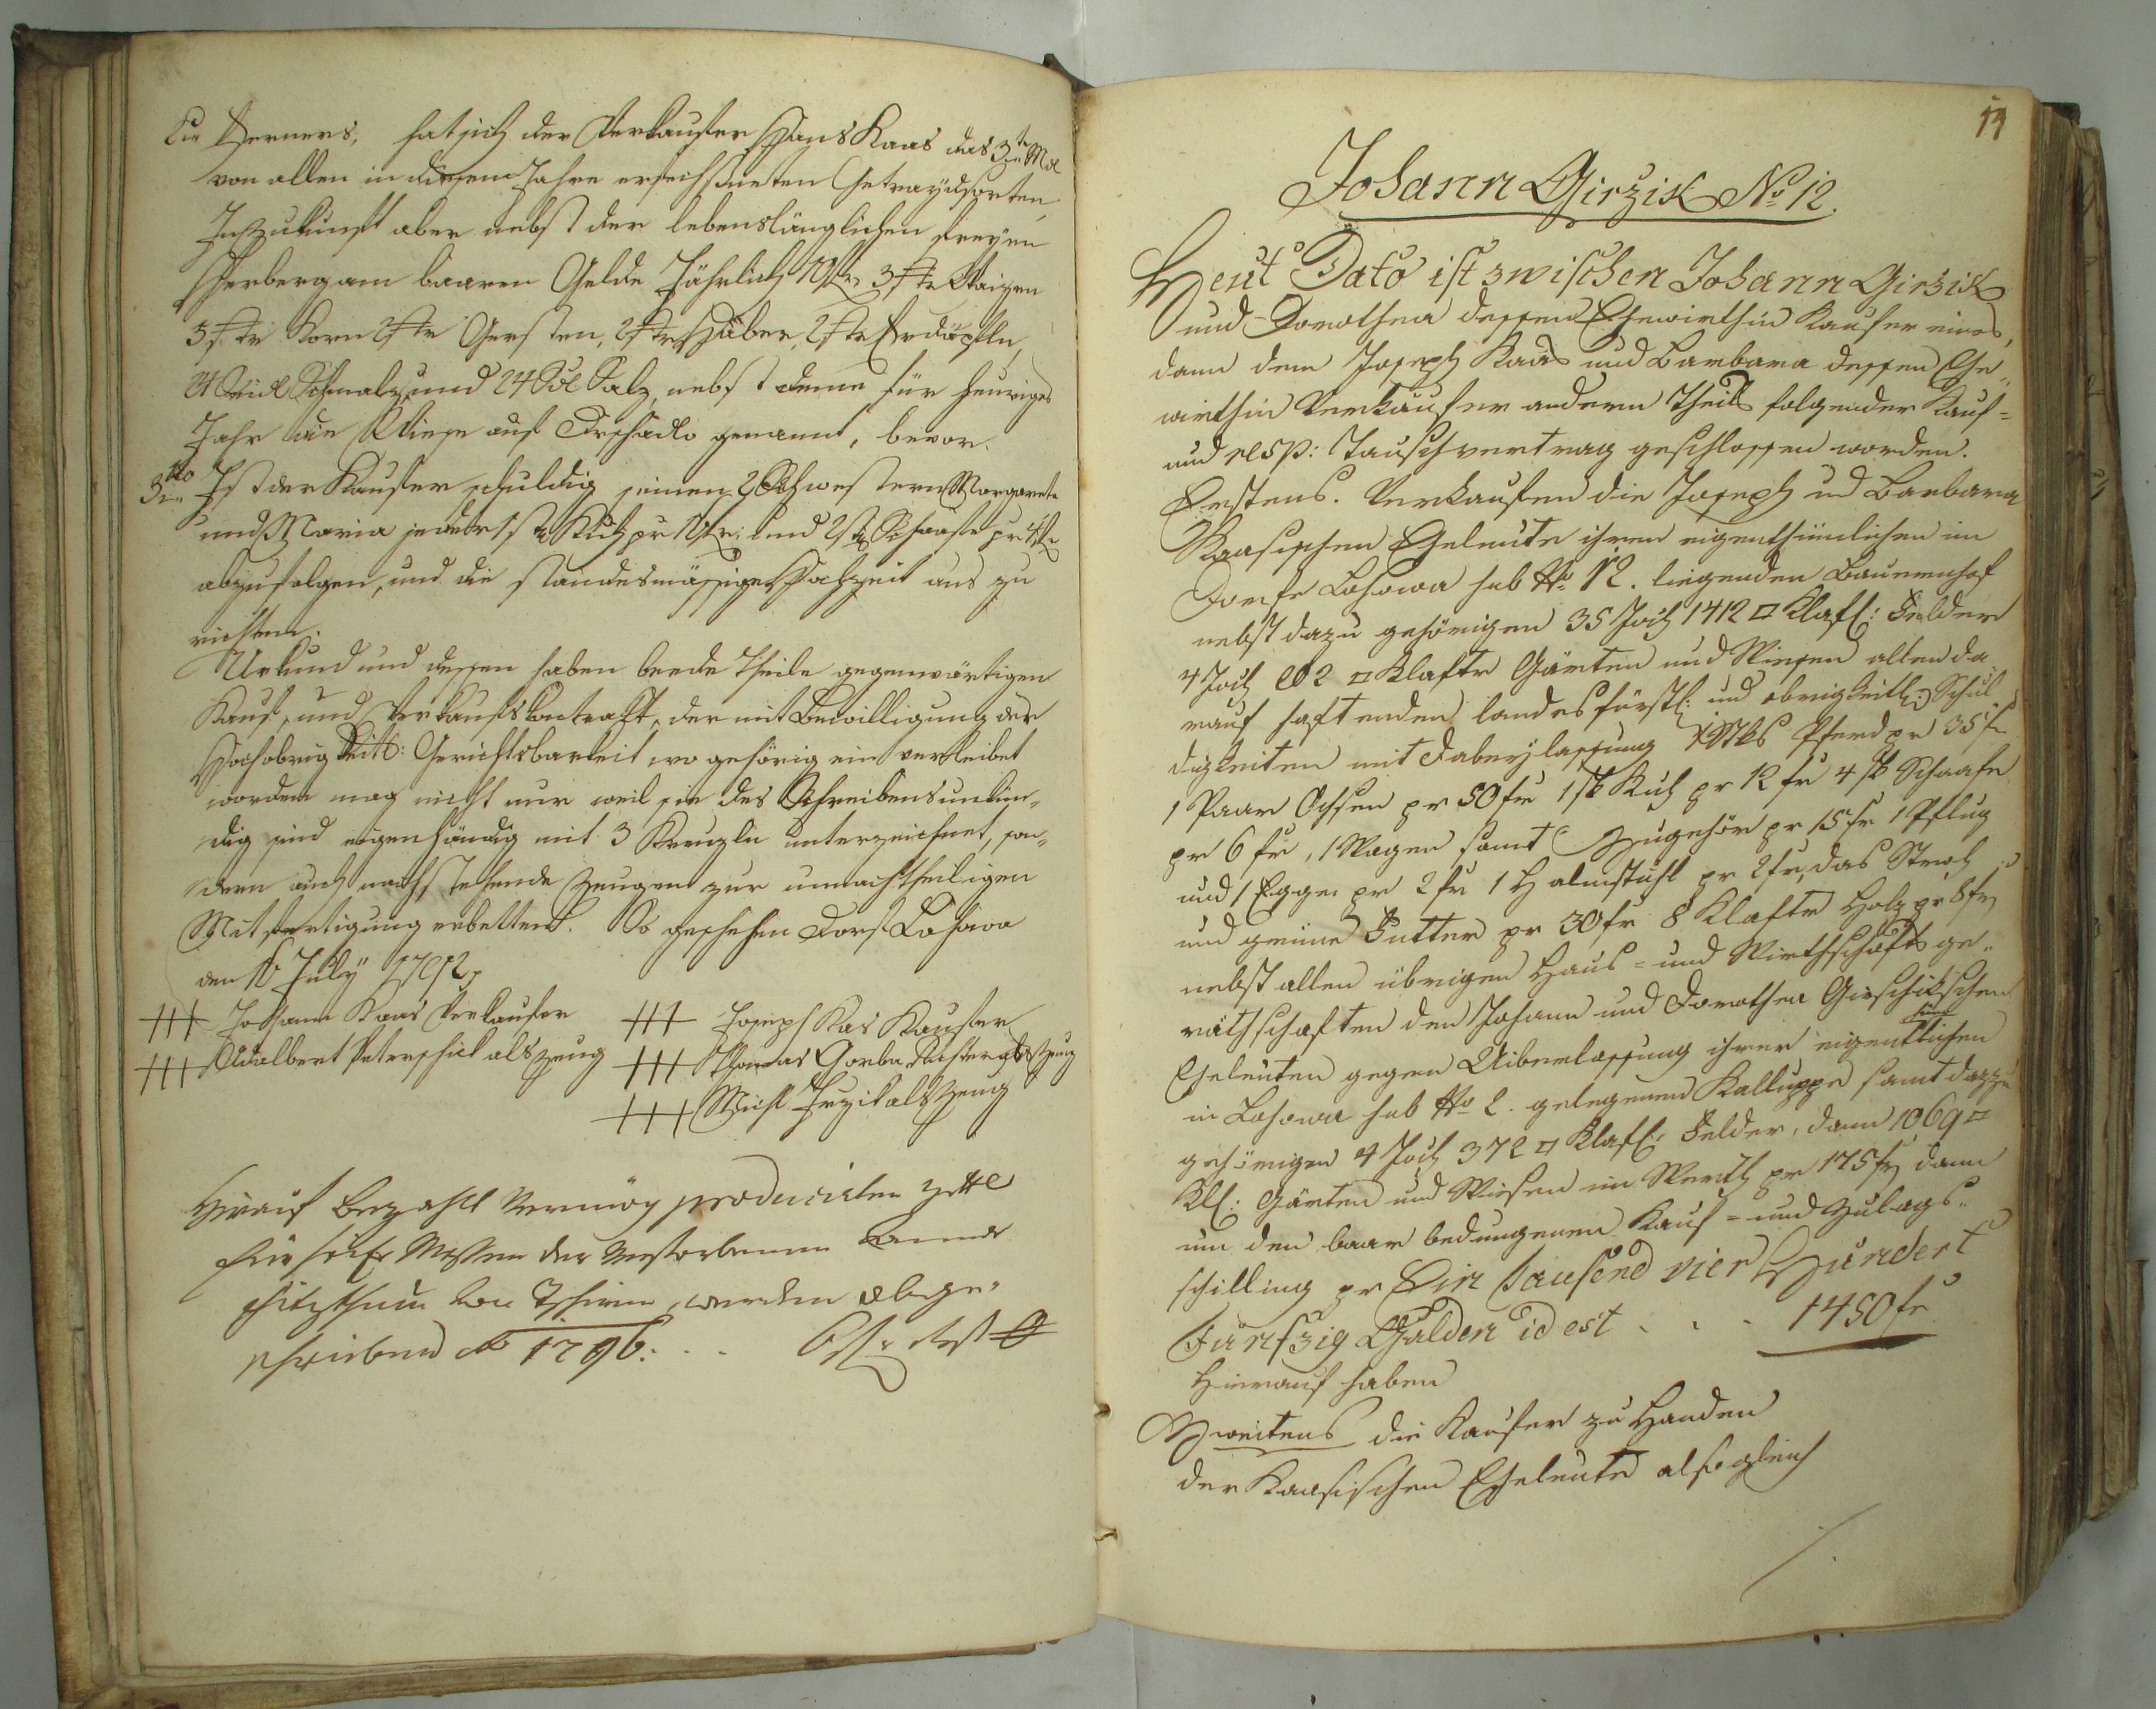 Ferners, hat sich der Verkaufer Hans Kaas das 3te Mdl
von allen in diesem Jahre erfechsneten Getraydsorten,
Inzukunft aber nebst der lebenslänglichen freyen
Herberg am baaren Gelde Jährlich 10 fr, 3 Str Waizen
3 Str Korn 2 Str Gersten, 2 Str Haber, 2 Str Erdäpfln,
24 Seidl Schmalz, und 24 Salz, nebst deme für heuriges
Jahr die Wiese auf genannt, bevor.
3tio Ist der Kaufer schuldig seinen 2 Schwestern Margareta
und Maria jeder 1 st Kuh pr 10 fr: und 2 st Schaafe pr 4 fr
abzufolgen, und die standesmässige Hochzeit aus zu
richten.
Urkund und dessen haben beede Theile gegenwärtigen
Kauf, und Verkaufskontrakt, der mit Bewilligung der
Hochobrigkeitl: Gerichtsbarkeit wo gehörig ein verleibet
worden mag nicht nur weil sie des Schreibens unkün-
dig sind eigenhändig mit 3 Kreuzln unterzeichnet, son-
dern auch nachstehende Zeugen zur unnachtheiligen
Mitfertigung erbetten. So geschehen Dorf Lohowa
den July 1792
+++ Johann Kaas Verkaufer +++ Joseph Kas Kaufer
+++ Adalbert Peterschick als Zeug +++ Thomas Gorba Richter als Zeug
+++ Michl als Zeug
Hirauf bezahlt Vermög producirten Zettl
für Messen der Verstorbenen
von werden abge-
schrieben 1796. . .
14
Johann Girzik No 12.
Heut Dato ist zwischen Johann Girzik
und Dorothea dessen Ehewirthin Kaufer eines,
dann dem Joseph Kaas und Barbara dessen Ehe-
wirthin Verkäufer andern Theils folgender Kauf-
und resp: Tauschvertrag geschlossen worden.
Erstens. Verkaufen die Joseph und Barbara
Kaasischen Eheleute ihren eigenthümlichen im
Dorfe Lohowa sub No 12. liegenden Bauernhof
nebst dazu gehörigen 35 Joch 1412 □ Klaft: Felder
4 Joch 602 □ Klafter Gärten und Wiesen allen da
rauf haftenden landesfürstl: und obrigkeitl: Schul
digkeiten mit Dabeylassung Pferd pr 35 fr
1 Paar Ochsen pr 50 fr 1 st Kuh pr 12 fr 4 st Schaafe
pr 6 fr, 1 Wagen samt Zugehör pr 15 fr 1 Pflug
und 1 Egge pr 2 fr 1 Halmstuhl pr 2 fr, das Stroh
und grüne Futter pr 30 fr 8 Klafter Holz pr 8 fr
nebst allen übrigen Haus- und Wirthschaftsge-
räthschaften den Johann und Dorothea Girschikschen
Eheleuten gegen Uiberlassung ihrer eigenthümlichen
in Lohowa sub No 2. gelegenen Kalluppe samt dazzu
gehörigen 4 Joch 372 □ Klaft: Felder, dann 1069 □
Kl: Gärten und Wiesen im Werth pr 175 fr dann
um den baar bedungenen Kauf- und Zulags-
schilling pr Ein tausend vier Hundert
Fünfzig Gulden id est . . . 1450 fr
Hierauf haben
Zweitens die Kaufer zu Handen
der Kaasischen Eheleute alsogleich